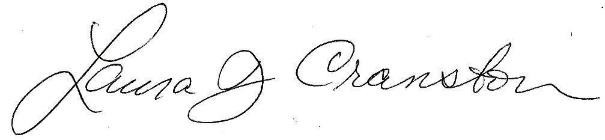 Laura J Cranston